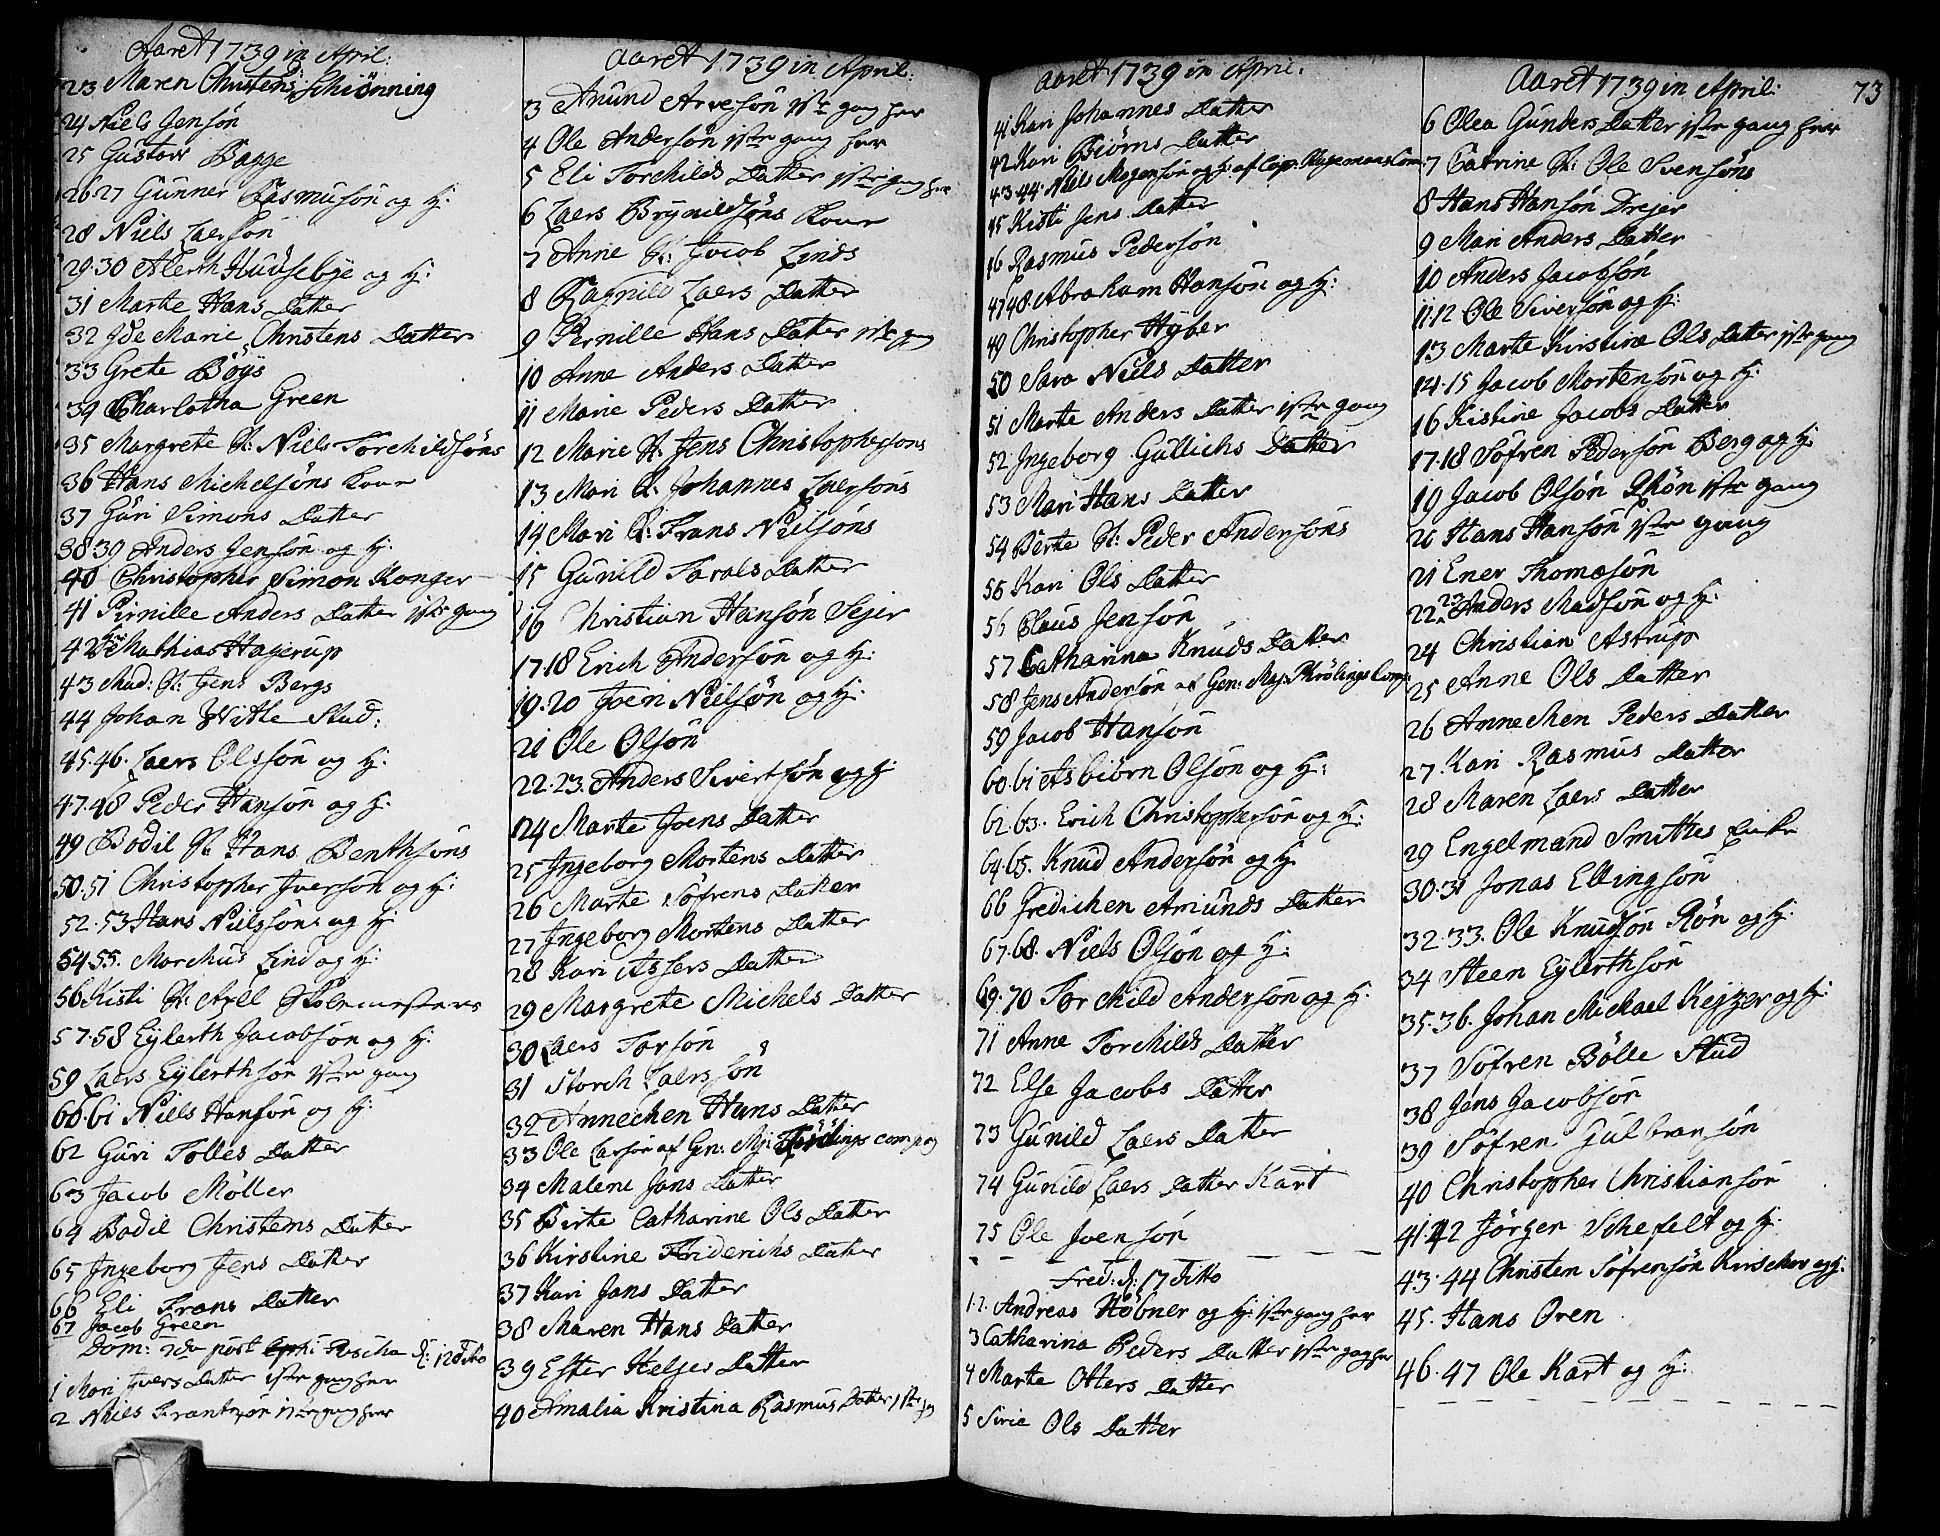 Aaret 1739 in April:
23 Maren Christens Schiönning
24 Niels Jensön
25 Güstow Bagge
26.27 Gunner Rasmusön og H:
28 Niels Laersön
29.30 Alerth Huusebye og H:
31 Marte Hans Datter
32 Ide Marie Christens Datter
33 Grete Böÿs
34 Charlotha Green
35 Margrete H: Niels Torchildsöns
36 Hans Michelsöns Kone
37 Güri Simons Datter
38.39 Anders Jensön og H:
40 Christopher Simon Konger
41 Pirnille Anders Datter 1ste gang
42 Mathias Hagerup
43 Mad: H: Jens Bergs
44 Johan Witle Stud:
45.46. Laers Olssön og H:
47.48 Peder Hansön og H:
49 Bodil H: Hans Benthsöns
50.51 Christopher Iversön og H:
52.53 Hans Nielssön og H:
54 55. Marchus Lind og H:
56. Kisti H: Axell
57.58 Eylerth Jacobsön og H:
59 Laers Eylerthsön 1ste gang
60.61 Niels Hansön og H:
62 Güri Tolles Datter
63 Jacob Möller
64 Bodil Christens Datter
65 Ingeborg Jens Datter
66 Eli Frans Datter
67 Jacob Green
Dom: 2da post Pascha d: 12 dito
1 Mari Ivers Datter 1ste gang her
2 Niels Frantzön 1ste gang her
Aaret 1739 in April:
3 Anund Arvesön 1ste gang her
4 Ole Andersön 1ste gang her
5 Eli Torchilds Datter 1ste gang her
6 Laers Brÿnildsöns Kone
7 Anne H: Jacob Linds
8 Ragnild Laers Datter
9 Pernille Hans Datter 1ste gang
10 Anne Anders Datter
11 Marie Peders Datter
12 Marie H: Jens Christophersons
13 Mari H: Johannes Laersöns
14 Mari H: Frans Nielsöns
15 Gunild Tarals Datter
16 Christian Hansön Sejer
17.18 Erich Andersön og H:
19.20 Joen Nielsön og H:
21 Ole Olsön
22.23. Anders Sivertsön og H
24 Marte Joens Datter
25 Ingeborg Mortens Datter
26 Marte Söfrens Datter
27 Ingeborg Mortens Datter
28 Kari Assers Datter
29 Margrete Michels Datter
30 Laers Torsön
31 Storch Laerssön
32 Annechen Hans Datter
33 Ole Larsön af Gen: Mj: compag
34 Malene Jans Datter
35 Birte Catharine Ols Datter
36 Kirstine Friderichs Datter
37 Kari Jans Datter
38 Maren Hans Datter
39 Ester Heljes Datter
40 Amalia Kristina Rasmus Datter 1ste g
Aaret 1739 in April.
41 Kari Johannes Datter
42 Kari Biörns Datter
43.44. Niels Mogensön og H: af Cap: Com:
45 Kisti Jens Datter
46 Rasmus Pedersön
47 48 Abraham Hansön og H:
49 Christopher Hÿber
50 Sara Niels Datter
51 Marte Anders Datter 1ste gang
52 Ingeborg Gullichs Datter
53 Mari Hans Datter
54 Berte H: Peder Andersöns
55 Kari Ols Datter
56 Claus Jensön
57 Catharina Knuds Datter
58 Jens Andersön af Gen: Maj: Comp:
59 Jacob Hansön
60.61 Asbiörn Olsön og H:
62.63. Erich Christophersön og H:
64.65. Knud Andersön og H:
66 Fredichen Amunds Datter
67.68. Niels Olsön og H:
69.70 Torchild Andersön og H:
71 Anne Torchilds Datter
72 Else Jacobs Datter
73 Gunild Laers Datter
74 Gunild Laers Datter Kart
75 Ole Joensön
Fred: d: 17 dito
1.2. Andreas Höbner og H: 1ste gang her
3 Catharina Peders Datter 1ste gang her
4 Marte Otters Datter
5 Sirie Ols Datter
Aaret 1739 in April: 73
6 Olea Gunders Datter 1ste gang her
7 Catrine H: Ole Svensöns
8 Hans Hansön Drejer
9 Mari Anders Datter
10 Anders Jacobsön
11.12 Ole Siversön og H:
13 Marte Kirstine Ols Datter 1ste gang
14.15 Jacob Mortensön og H:
16 Kistine Jacobs Datter
17.18 Söfren Pedersön Berg og H:
19 Jacob Olsön Rön 1ste gang
20 Hans Hansön 1ste gang
21 Ener Thomæsön
22.23 Anders Madsön og H:
24 Christian Astrup
25 Anne Ols Datter
26 Annechen Peders Datter
27. Kari Rasmus Datter
28 Maren Laers Datter
29 Engelmand Smittes Enke
30.31 Jonas Ellingsön
32.33. Ole Knudsön Rön og H:
34 Steen Eylerthsön
35.36. Johan Michael Kejzer og H:
37 Söfren Bölle Stud
38 Jens Jacobsön
39 Söfren Gulbransön
40 Christopher Christiansön
41.42 Jörgen Schefelt og H:
43.44 Christen Söfrensön Kirschow og H:
45. Hans Oren
46.47 Ole Kart og H: